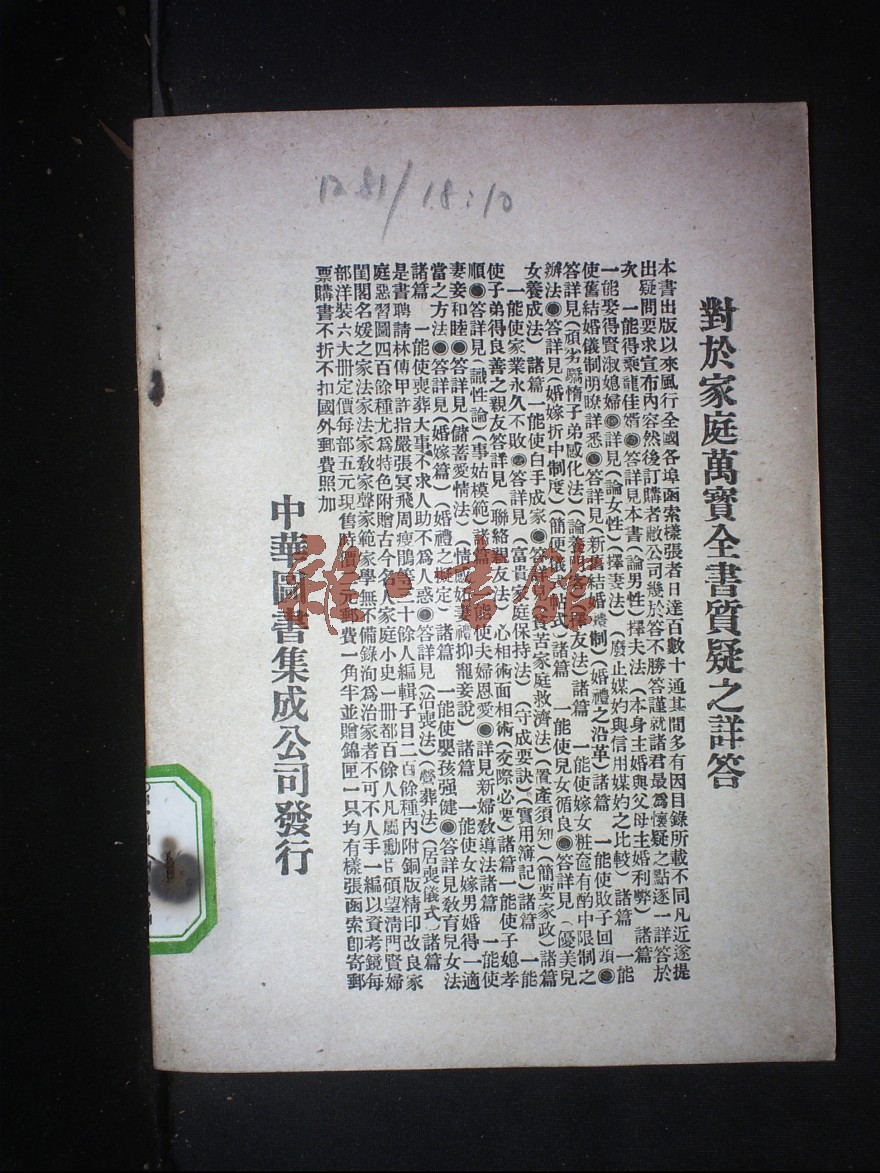 12.81/18:10
對於家庭萬寶全書質疑之詳答
本書出版以來風行全國各埠函索樣張者日達百數十通其間多有因目錄所載不同凡近遂提
出疑問要求宣布內容然後訂購者敝公司幾於答不勝答謹就諸君最爲懷疑之點逐一詳答於
次　一能得乘龍佳婿●答詳見本書(論男性)擇夫法)(本身主婚與父母主婚利弊)諸篇
一能娶得賢淑媳婦●詳見(論女性)(擇妻法)(廢止媒妁與信用媒妁之比較)諸篇　一能
使舊結婚儀制明瞭詳悉●答詳見(新舊結婚禮制)(婚禮之沿革)諸篇　一能使敗子回頭●
答詳見(頑劣驕惰子弟感化法)(論友法)諸篇　一能使嫁女粧奩有酌中限制之
辦法●答詳見(婚嫁折中制度)(簡便儀式)諸篇　一能使兒女循良●答詳見(優美兒
女養成法)諸篇一能使白手成家●答詳見苦家庭救濟法)(置產須知)(簡要家政)諸篇
一能使家業永久不敗●答詳見(富貴家庭保持法)(守成要訣)(實用簿記)諸篇　一能
使子弟得良善之親友答詳見(聯絡親友法)心相術面相術(交際必要)諸篇一能使子媳孝
順●答詳見(識性論)(事姑模範)諸篇一能使夫婦恩愛●詳見新婦教導法諸篇　一能使
妻妾和睦●答詳見(儲蓄愛情法)(情感妬妻禮抑寵妾說)諸篇　一能使女嫁男婚得一適
當之方法●答詳見(婚嫁篇)(婚禮之擬定)諸篇　一能使嬰孩强健●答詳見教育兒女法
諸篇　一能使喪葬大事不求人助不爲人惑●答詳見(治喪法)(營葬法)(居喪儀式)諸篇
是書聘請林傳甲許指嚴張冥飛周瘦鵑等二十餘人編輯子目二百餘種內附銅版精印改良家
庭惡習圖四百餘種尤爲特色附贈古今名人家庭小史一冊都百餘人凡屬勳片碩望淸門賢婦
閨閣名媛之家法家法家教家聲家範家學無不備錄洵爲治家者不可不人手一編以資考鏡每
部洋裝六大冊定價每部五元現舊特價元郵費一角半並贈錦匣一只均有樣張函索卽寄郵
票購書不折不扣國外郵費照加
中華圖書集成公司發行
雅書館